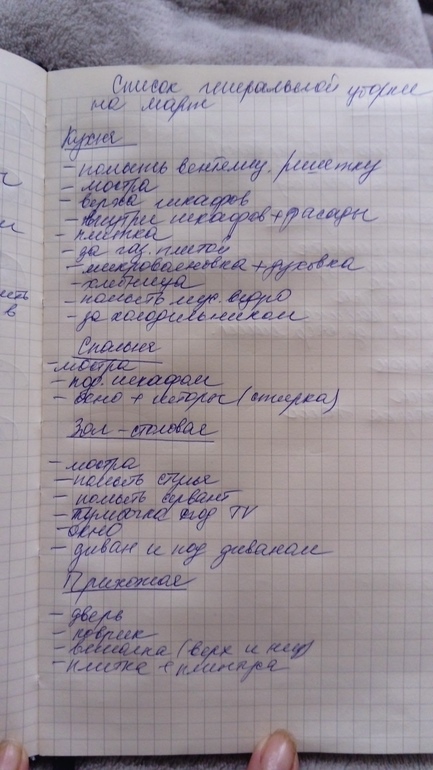 Список генеральной уборки
на март
Кухня
- помыть вентиляц. решетку
- люстра
- верха шкафов
- внутри шкафов + фасады
- плитка
- за газ. плитой
- микроволновка + духовка
- хлебница
- помыть мус. ведро
- за холодильником
Спальня
- люстра
- под шкафом
- окно + шторы (стирка)
Зал - столовая
- люстра
- помыть стулья
- помыть сервант
- тумбочка под TV
- окно
- диван и под диваном
Прихожая
- дверь
- коврик
- вешалка (верх и низ)
- плитка + плинтуса